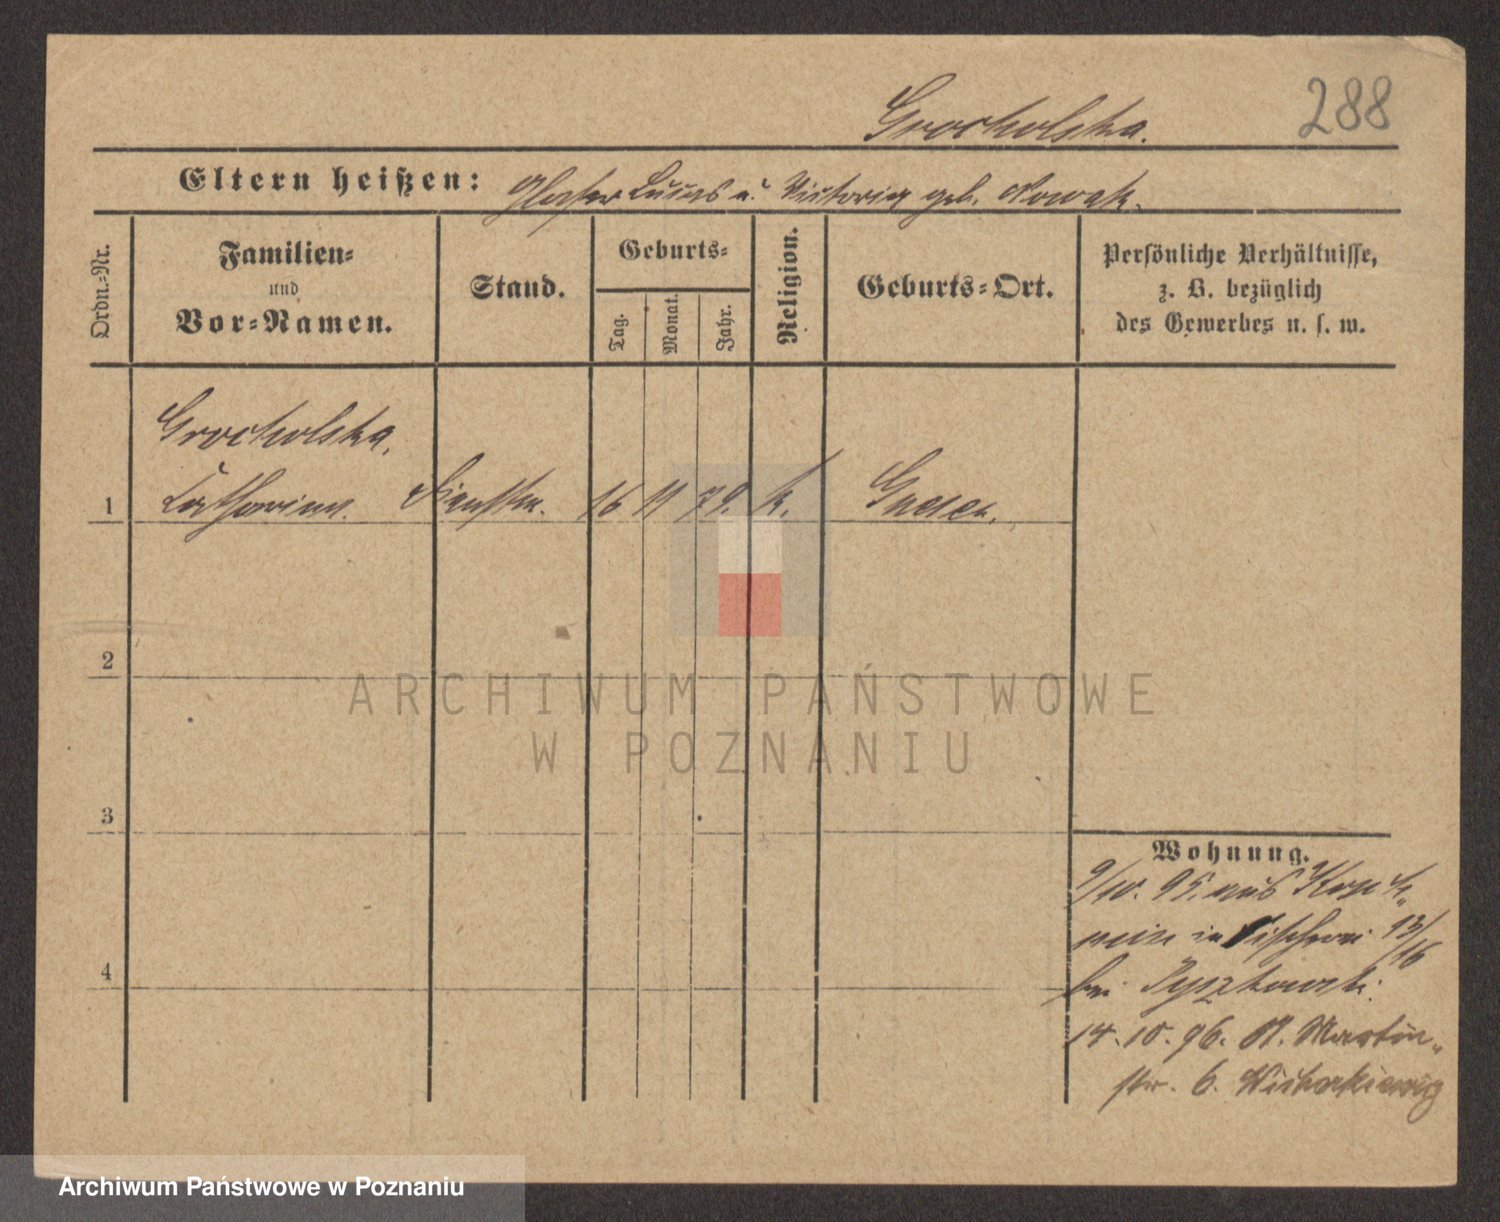 288
Grocholska.
Eltern heißen: Glaser Lucas u. Victoria geb. Nowak.
Ordn.-Nr.
Familien-
und
Vor-Namen.
Stand.
Geburts-
Tag.
Monat.
Jahr.
Religion.
Geburts-Ort.
Persönliche Verhältnisse,
z. B. bezüglich
des Gewerbes u. s. w.
Grocholska,
1 Catharina. Dienstm. 16 11 79. k. Gnesen.
2
3
4
Wohnung.
9/10. 95. aus
in Fischerei 13/16
bei Tyszkowski.
14. 10. 96. St. Martin-
str. 6.
ARCHIWUM PAŃSTWOWE
W POZNANIU
Archiwum Państwowe w Poznaniu